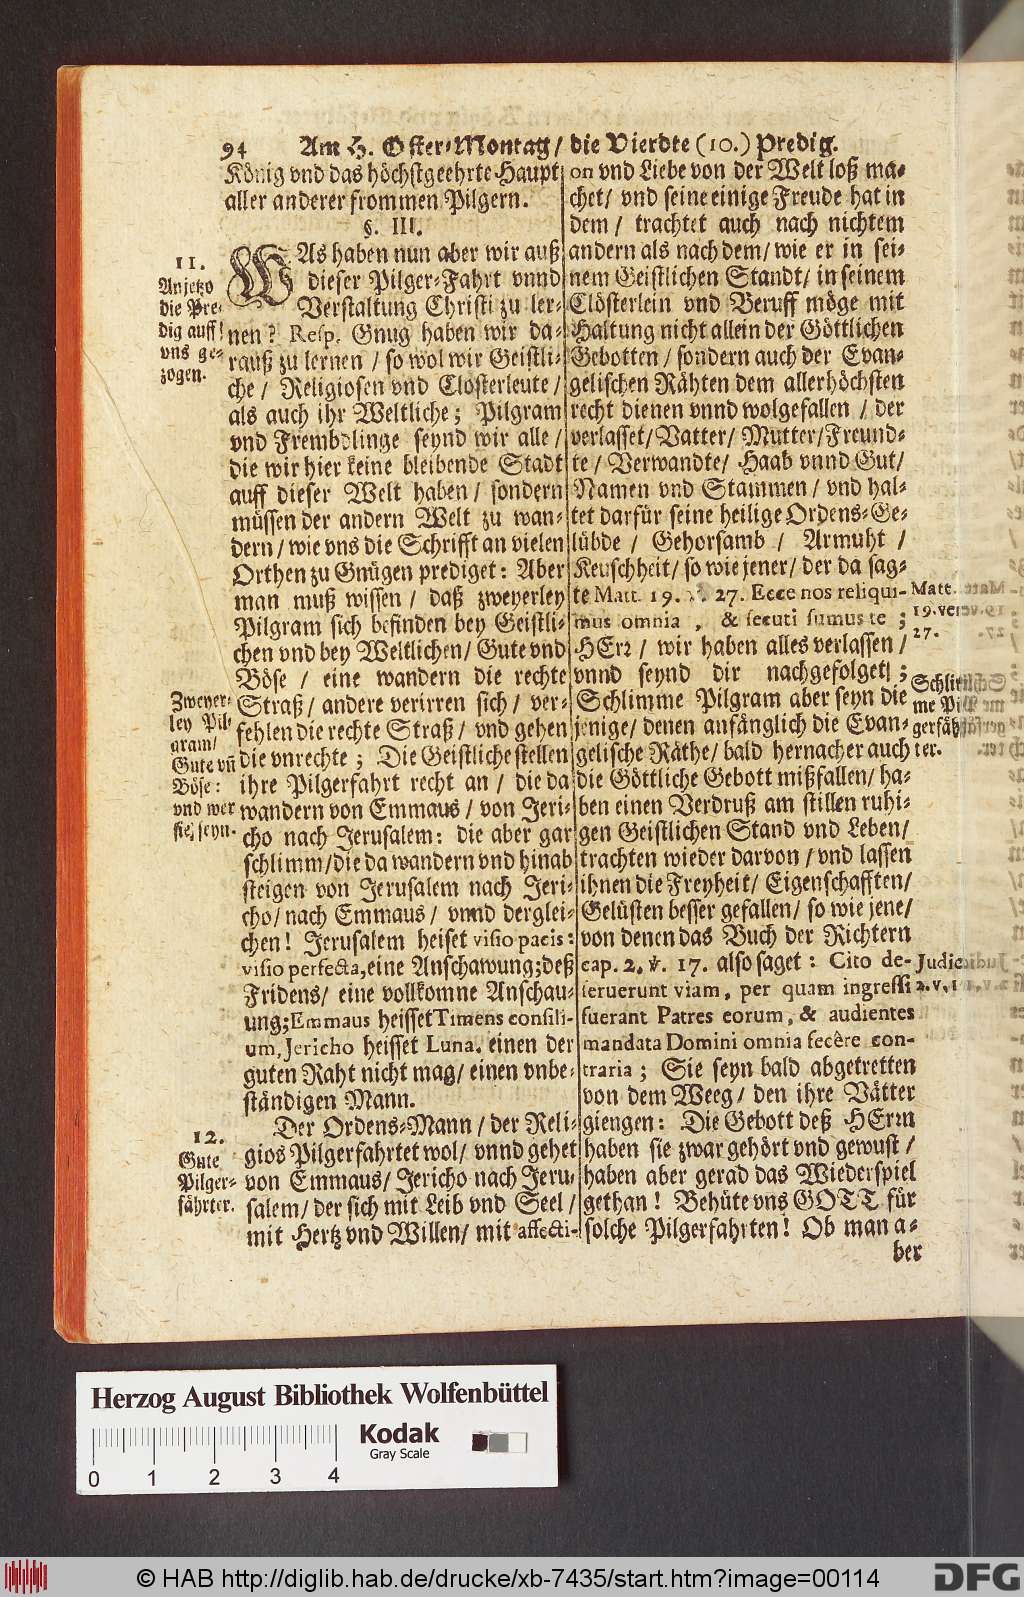 94 Am H. Oster-Montag / die Vierdte (10.) Predig.
König vnd das höchstgeehrte Haupt
aller anderer frommen Pilgern.
§. III.
WAs haben nun aber wir auß
dieser Pilger-Fahrt vnnd
Verstaltung Christi zu ler-
nen? Resp. Gnug haben wir da-
rauß zu lernen / so wol wir Geistli-
che / Religiosen vnd Clösterleute /
als auch ihr Weltliche; Pilgram
vnd Frembdlinge seynd wir alle /
die wir hier keine bleibende Stadt
auff dieser Welt haben / sondern
müssen der andern Welt zu wan-
dern / wie vns die Schrifft an vielen
Orthen zu Gnügen prediget: Aber
man muß wissen / daß zweyerley
Pilgram sich befinden bey Geistli-
chen vnd bey Weltlichen / Gute vnd
Böse / eine wandern die rechte
Straß / andere verirren sich / ver-
fehlen die rechte Straß / vnd gehen
die vnrechte; Die Geistliche stellen
ihre Pilgerfahrt recht an / die da
wandern von Emmaus / von Jeri-
cho nach Jerusalem: die aber gar
schlimm / die da wandern vnd hinab
steigen von Jerusalem nach Jeri-
cho / nach Emmaus / vnnd derglei-
chen! Jerusalem heiset visio pacis:
visio perfecta, eine Anschawung; deß
Fridens / eine vollkomne Anschau-
ung; Emmaus heisset Timens consili-
um, Jericho heisset Luna. einen der
guten Raht nicht mag / einen vnbe-
ständigen Mann.
Der Ordens-Mann / der Reli-
gios Pilgerfahrtet wol / vnnd gehet
von Emmaus / Jericho nach Jeru-
salem / der sich mit Leib vnd Seel /
mit Hertz vnd Willen / mit affecti-
11.
Anjetzo
die Pre-
dig auff
vns ge-
zogen.
Zweyer-
ley Pil-
gram /
Gute vñ
Böse:
vnd wer
sie seyn.
12.
Gute
Pilger-
fährter.
on vnd Liebe von der Welt loß ma-
chet / vnd seine einige Freude hat in
dem / trachtet auch nach nichtem
andern als nach dem / wie er in sei-
nem Geistlichen Standt / in seinem
Clösterlein vnd Beruff möge mit
Haltung nicht allein der Göttlichen
Gebotten / sondern auch der Evan-
gelischen Rähten dem allerhöchsten
recht dienen vnnd wolgefallen / der
verlasset / Vatter / Mutter / Freund-
te / Verwandte / Haab vnnd Gut /
Namen vnd Stammen / vnd hal-
tet darfür seine heilige Ordens-Ge-
lübde / Gehorsamb / Armuht /
Keuschheit / so wie jener / der da sag-
te Matt. 19. v. 27. Ecce nos reliqui-
mus omnia, & secuti sumus te;
HErr / wir haben alles verlassen /
vnnd seynd dir nachgefolget;
Schlimme Pilgram aber seyn die
jenige / denen anfänglich die Evan-
gelische Räthe / bald hernacher auch
die Göttliche Gebott mißfallen / ha-
ben einen Verdruß am stillen ruhi-
gen Geistlichen Stand vnd Leben /
trachten wieder darvon / vnd lassen
ihnen die Freyheit / Eigenschafften /
Gelüsten besser gefallen / so wie jene /
von denen das Buch der Richtern
cap. 2. v. 17. also saget: Cito de-
seruerunt viam, per quam ingressi
fuerant Patres eorum, & audientes
mandata Domini omnia fecêre con-
traria; Sie seyn bald abgetretten
von dem Weeg / den ihre Vätter
giengen: Die Gebott deß HErrn
haben sie zwar gehört vnd gewust /
haben aber gerad das Wiederspiel
gethan! Behüte vns GOTT für
solche Pilgerfahrten! Ob man a-
ber
Matt.
19. vers.
27.
Schlim-
me Pil-
gerfäh-
ter.
Judic.
2. v.
Herzog August Bibliothek Wolfenbüttel
Kodak
Gray Scale
0 1 2 3 4
© HAB http://diglib.hab.de/drucke/xb-7435/start.htm?image=00114
DFG